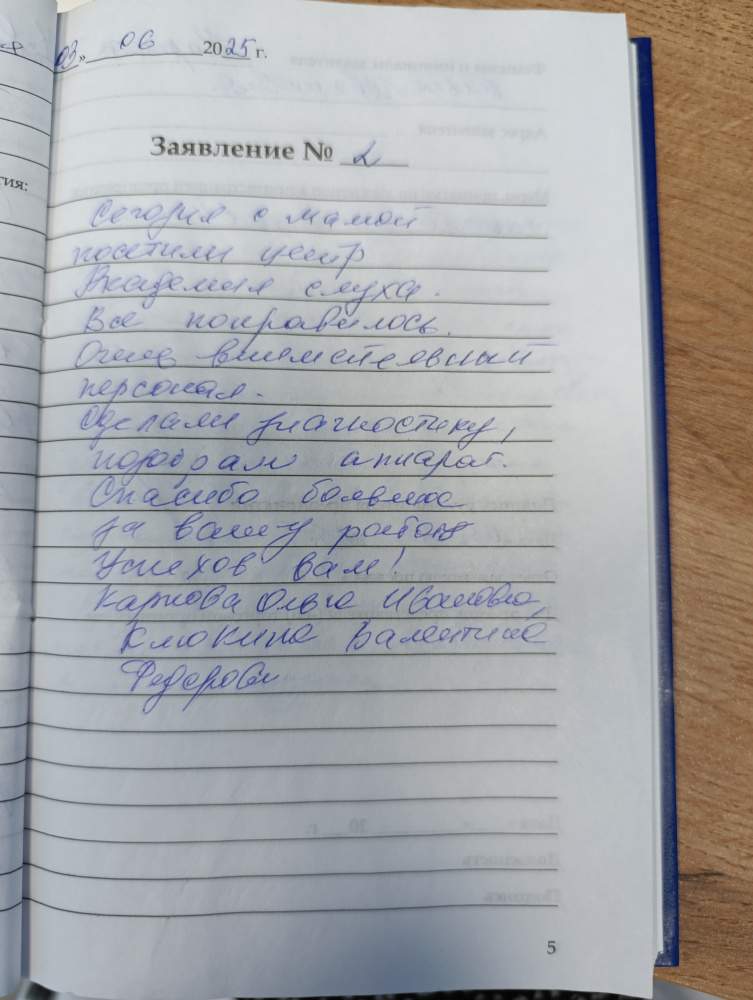 03» 06 2025 г.
Заявление № 2
тия:
Сегодня с мамой
посетили центр
Академия слуха.
Все понравилось.
Очень внимательный
персонал.
Сделали диагностику,
подобрали аппарат.
Спасибо большое
за вашу работу
Успехов вам!
Карпова Ольга Ивановна
Клюкина Валентина
Федоровн
5